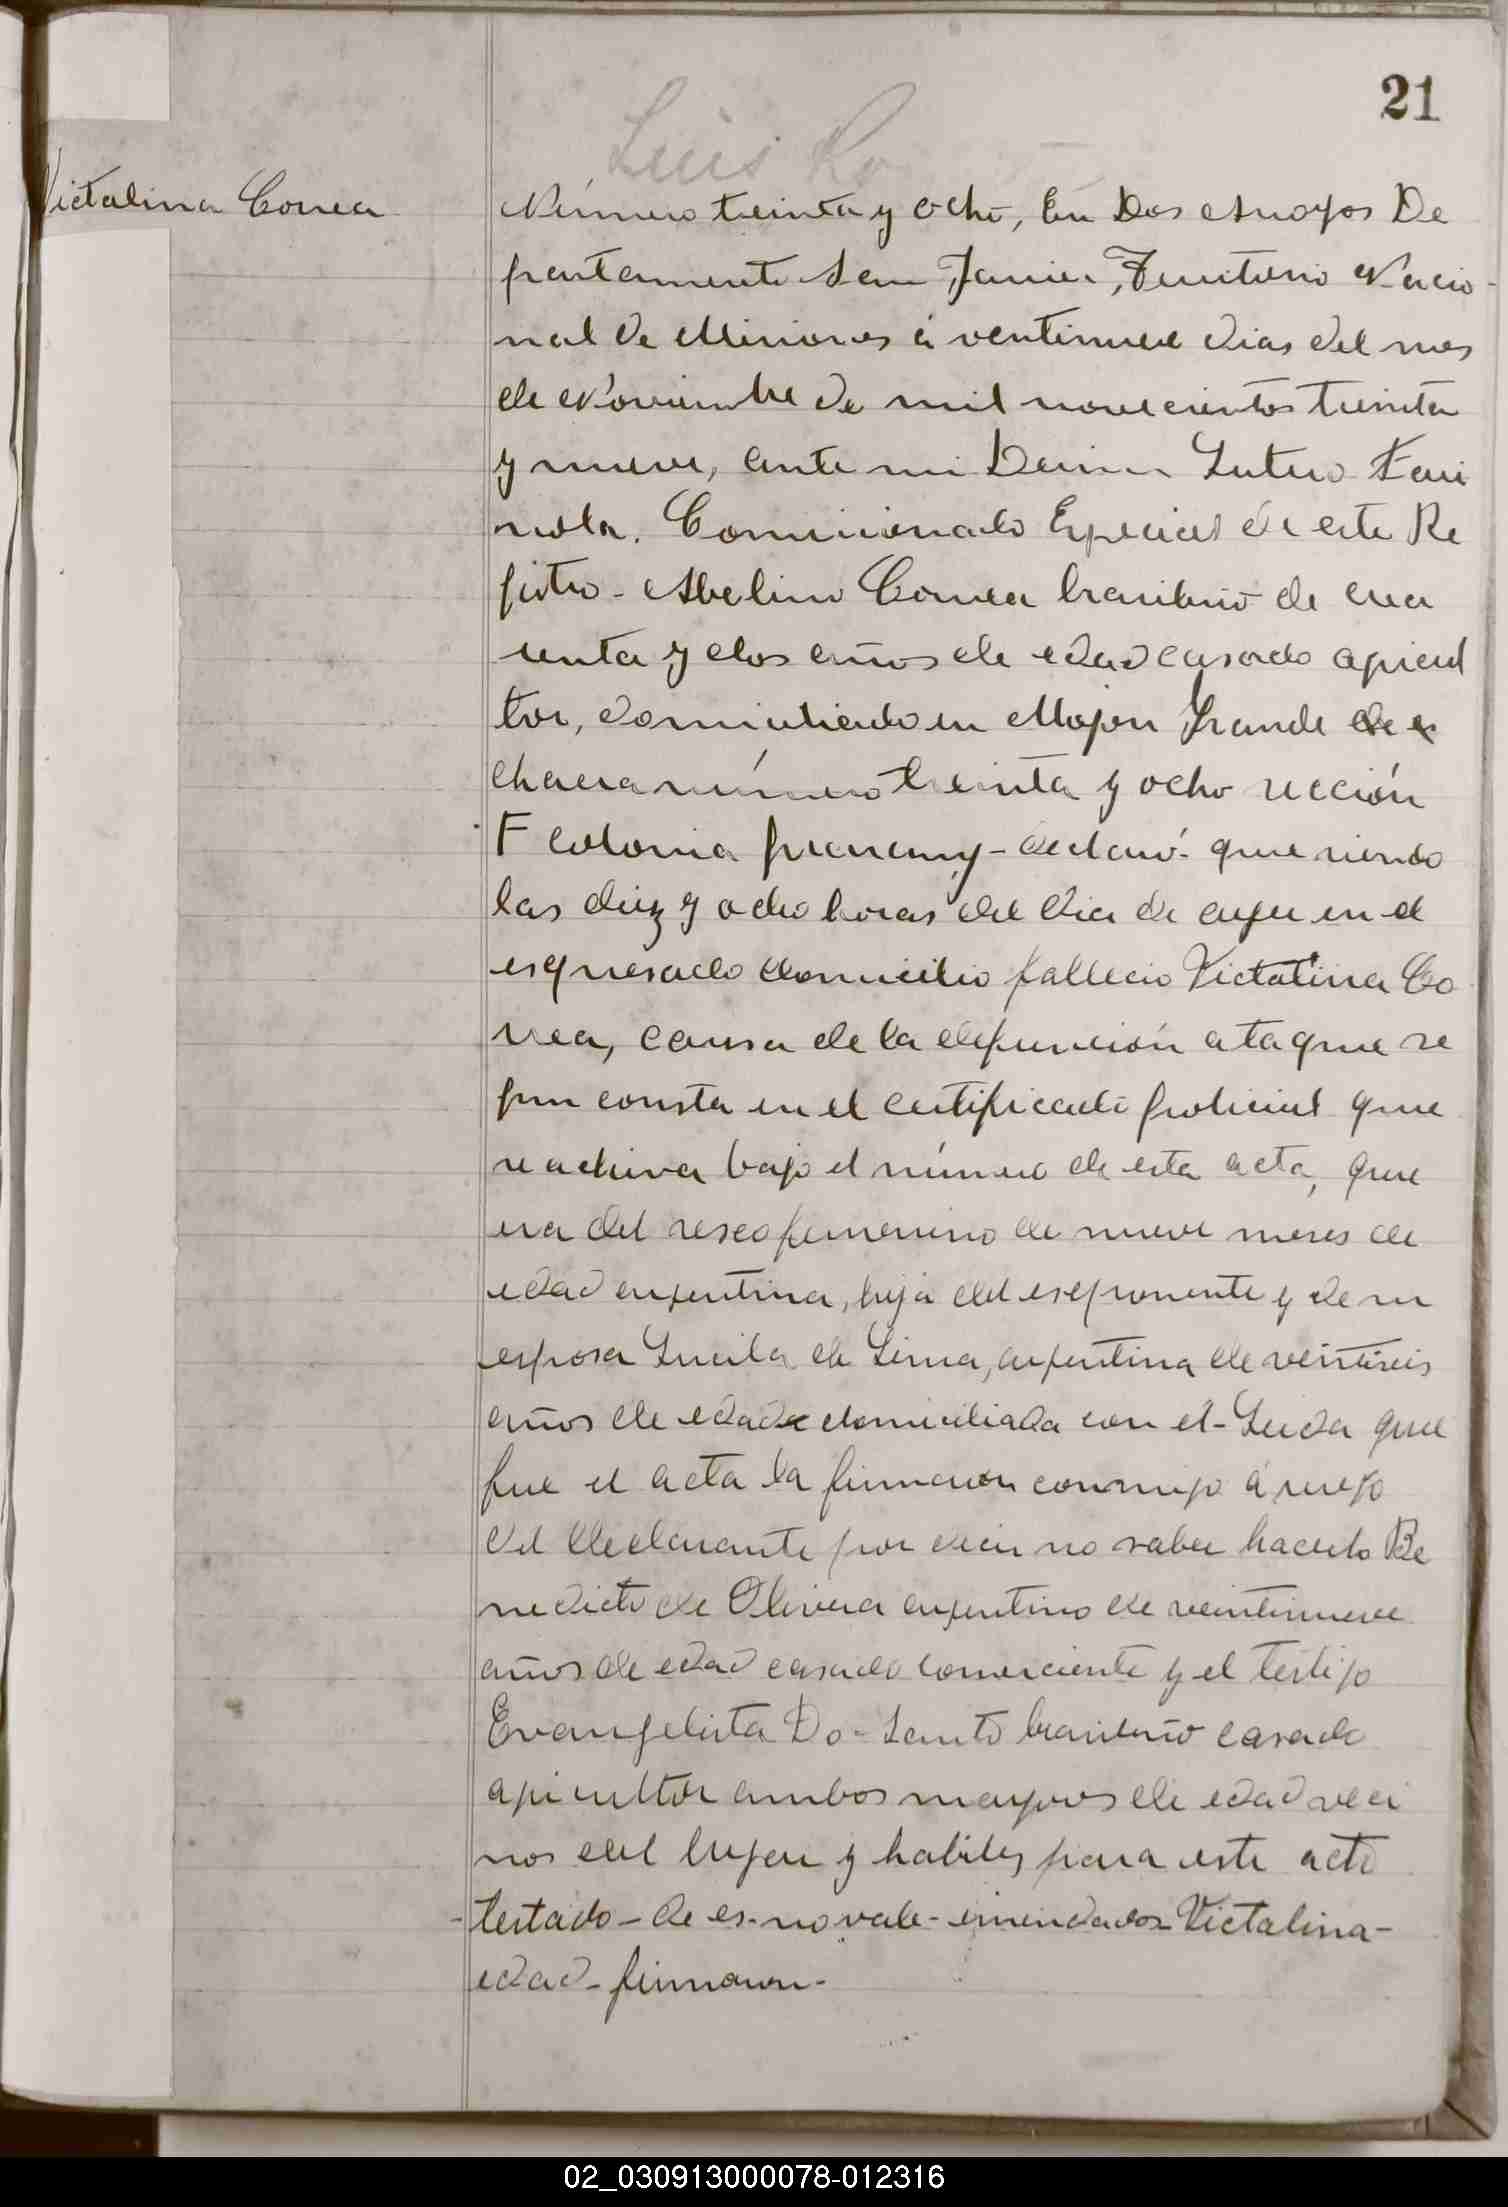 21
Luis Lo
Victalina Correa
Número treinta y ocho, En Dos Arroyos De
partamento San Javier, Territorio Nacio-
nal de Misiones á ventinueve dias del mes
de Noviembre de mil novecientos treinta
y nueve, ante mi Lutero Fari
ñola. Comicionado Especial de este Re
gistro - Abelino Correa brasilero de cua
renta y dos años de edad casado agricul
tor, domiciliado en Mojon Grande de es
chacra número treinta y ocho sección
F colonia - declaró - que siendo
las diez y ocho horas del dia de ayer en el
espresado domicilio fallecio Victalina Co
rrea, causa de la defunción ataque se
gun consta en el certificado policial que
se archiva bajo el número de esta acta, que
era del sexo femenino de nueve meses de
edad argentina, hija del esponente y de su
esposa Lucila de Lima, argentina de veintiseis
años de edad domiciliada con el - Leida que
fue el acta la firmaron conmigo á ruego
del declarante por decir no saber hacerlo Be
nedicto de Olivera argentino de veintinueve
años de edad casado comerciante y el testigo
Evangelista Do - Santo brasilero casado
agricultor ambos mayores de edad veci
nos del lugar y habiles para este acto
- testado - de es - no vale - enmendados Victalina -
edad - firmaron -
02_030913000078-012316